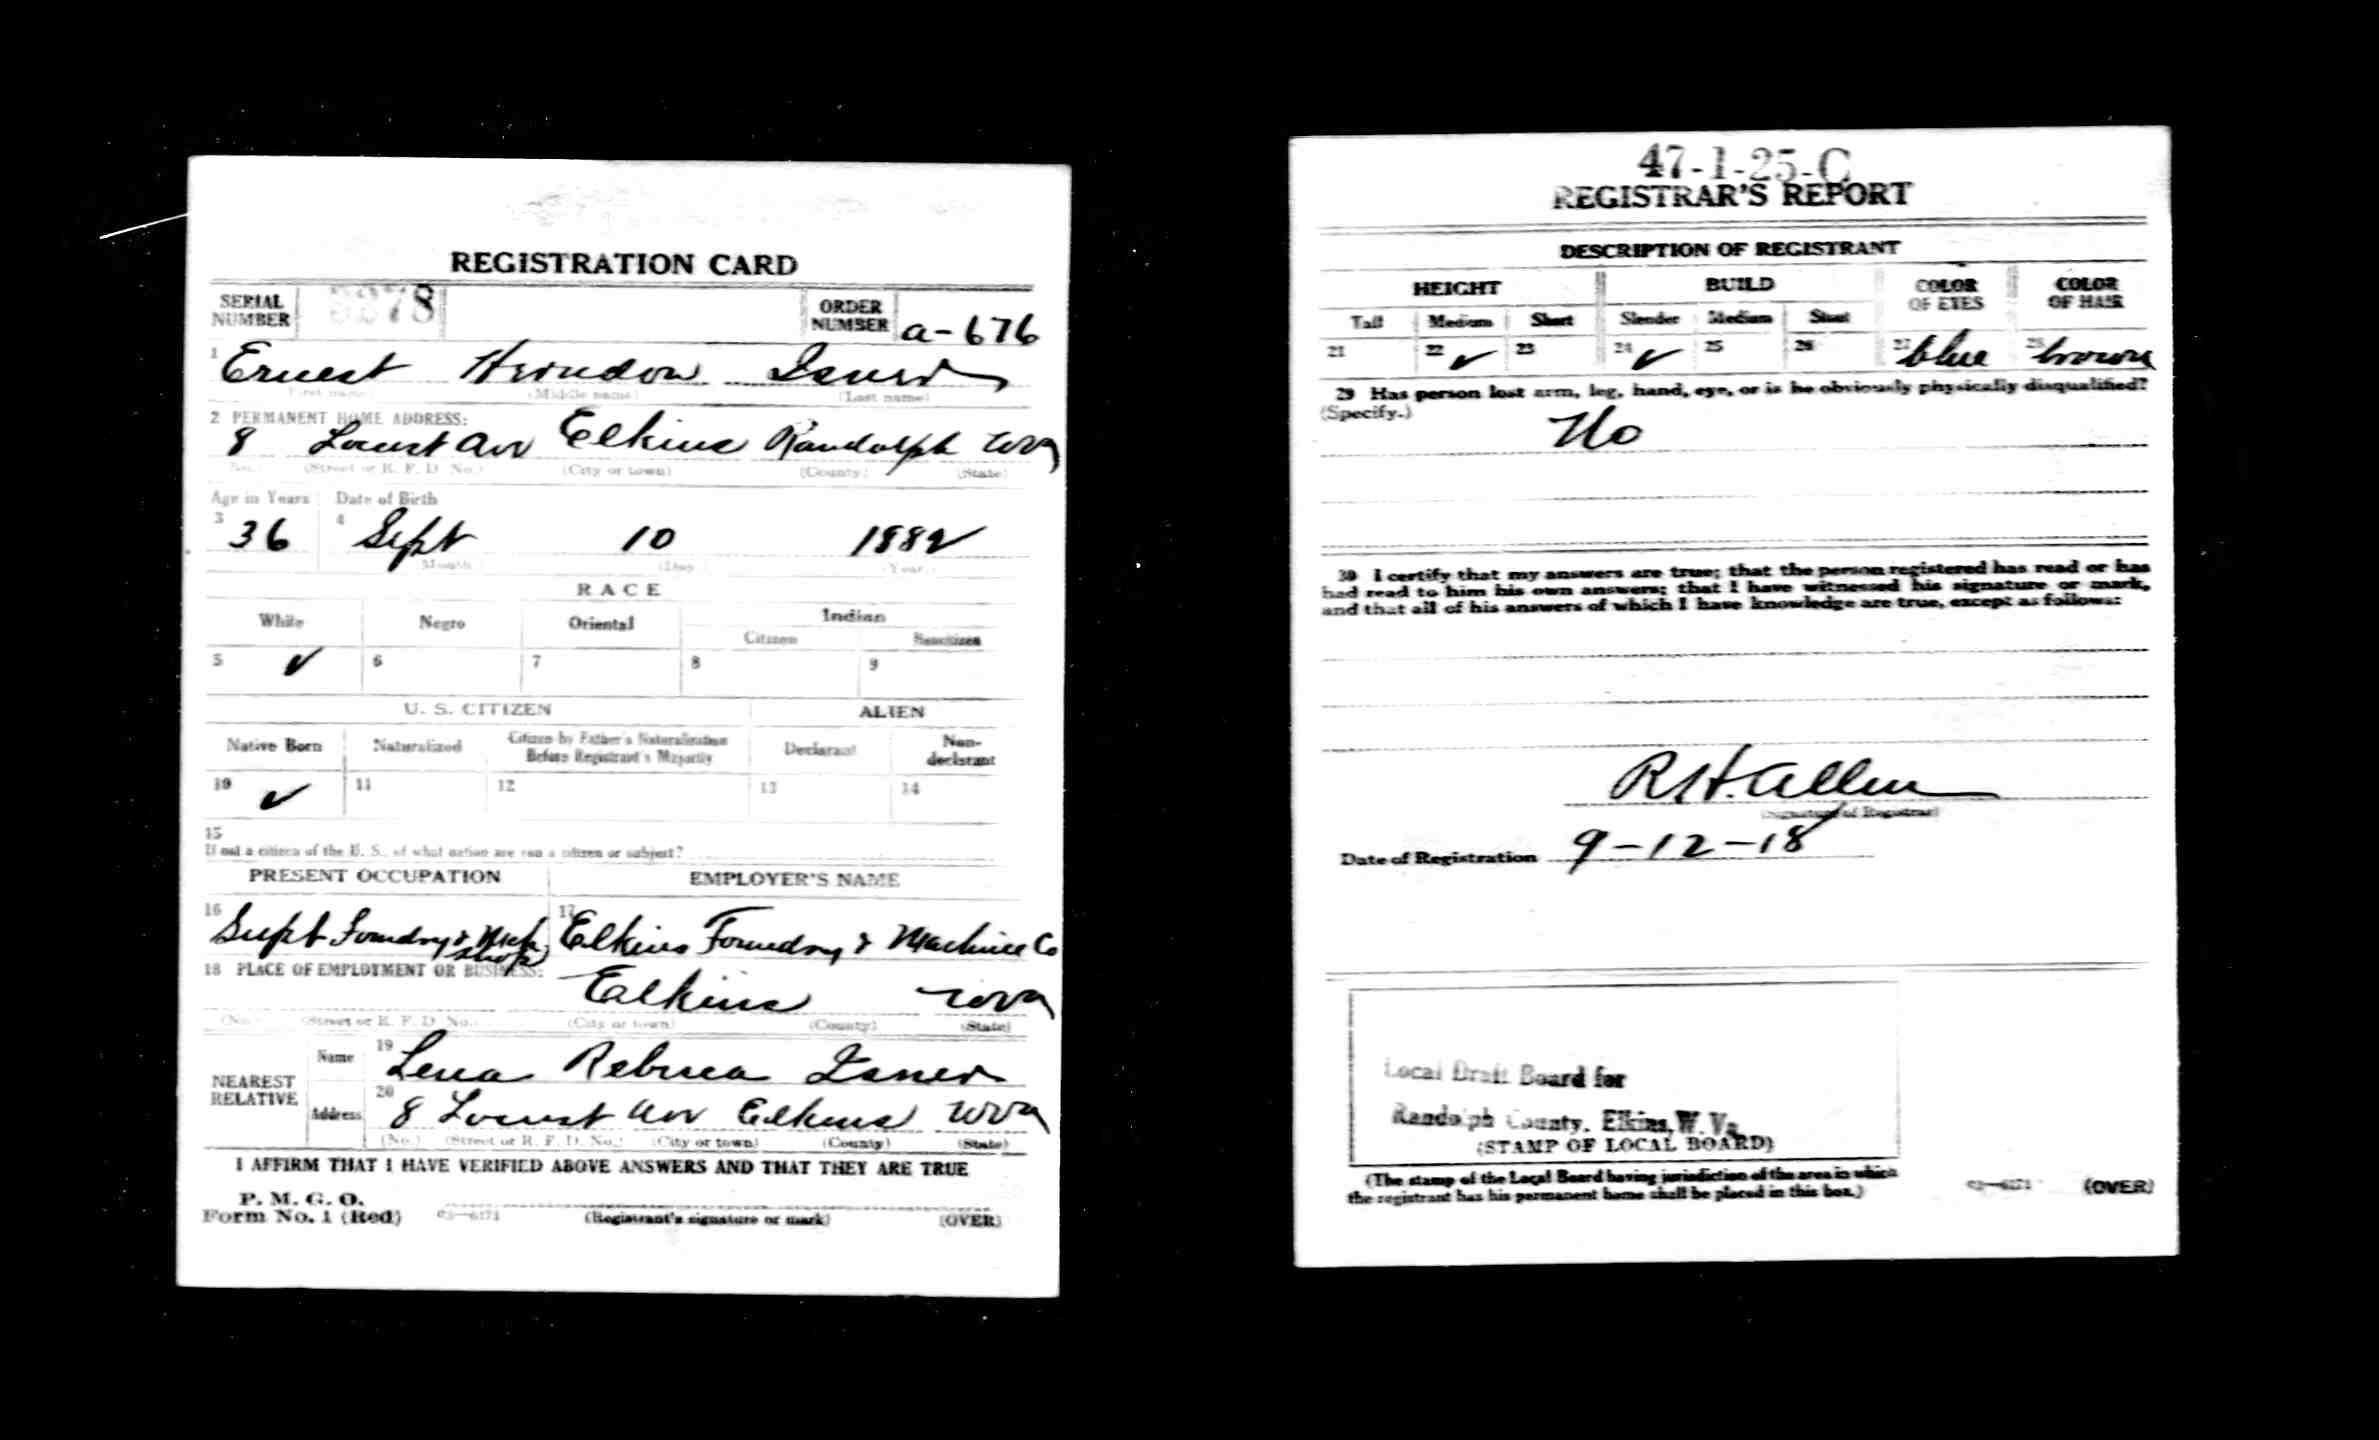 REGISTRATION CARD
SERIAL NUMBER
ORDER NUMBER a-676
1 Ernest Herndon Isner
(First name) (Middle name) (Last name)
2 PERMANENT HOME ADDRESS:
8 Locust Av Elkins Randolph WVa
(No.) (Street or R. F. D. No.) (City or town) (County) (State)
Age in Years Date of Birth
3 36 4 Sept 10 1882
(Month) (Day) (Year)
RACE
White Negro Oriental Indian
Citizen Noncitizen
5 ✓ 6 7 8 9
U. S. CITIZEN ALIEN
Native Born Naturalized Citizen by Father's Naturalization Before Registrant's Majority Declarant Non-declarant
10 ✓ 11 12 13 14
15
If not a citizen of the U. S., of what nation are you a citizen or subject?
PRESENT OCCUPATION EMPLOYER'S NAME
16 Supt Foundry & Mch Shop 17 Elkins Foundry & Machine Co
18 PLACE OF EMPLOYMENT OR BUSINESS:
Elkins WVa
(No.) (Street or R. F. D. No.) (City or town) (County) (State)
NEAREST RELATIVE
Name 19 Lena Rebecca Isner
Address 20 8 Locust Av Elkins WVa
(No.) (Street or R. F. D. No.) (City or town) (County) (State)
I AFFIRM THAT I HAVE VERIFIED ABOVE ANSWERS AND THAT THEY ARE TRUE
P. M. G. O.
Form No. 1 (Red) 03—6171 (Registrant's signature or mark) (OVER)
47-1-25-C
REGISTRAR'S REPORT
DESCRIPTION OF REGISTRANT
HEIGHT BUILD COLOR OF EYES COLOR OF HAIR
Tall Medium Short Slender Medium Stout
21 22 ✓ 23 24 ✓ 25 26 27 blue 28 brown
29 Has person lost arm, leg, hand, eye, or is he obviously physically disqualified?
(Specify.) No
30 I certify that my answers are true; that the person registered has read or has
had read to him his own answers; that I have witnessed his signature or mark,
and that all of his answers of which I have knowledge are true, except as follows:
R H. Allen
(Signature of Registrar)
Date of Registration 9-12-18
Local Draft Board for
Randolph County, Elkins, W. Va.
(STAMP OF LOCAL BOARD)
(The stamp of the Local Board having jurisdiction of the area in which
the registrant has his permanent home shall be placed in this box.)
03—6171 (OVER)